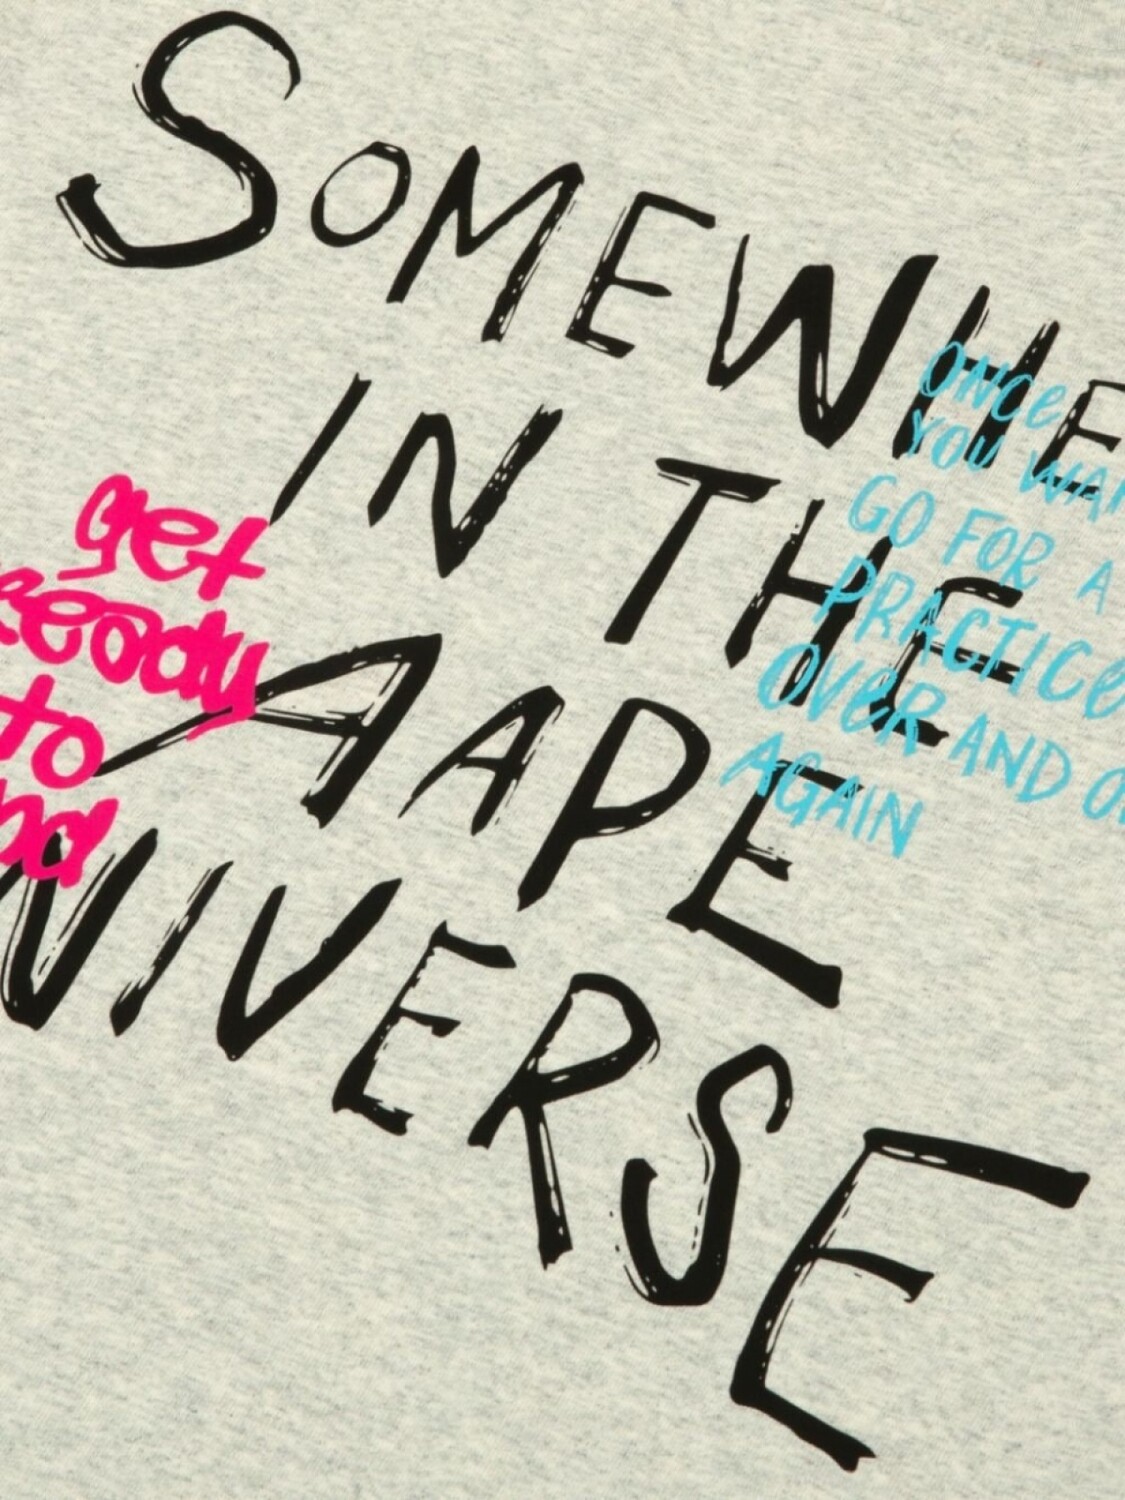 SOMEWHE
IN THE
AAPE
NIVERSE
get
Ready
to
ONCe
YOU WAN
GO FOR A
PRACTICe
OVeR AND OV
AGAIN